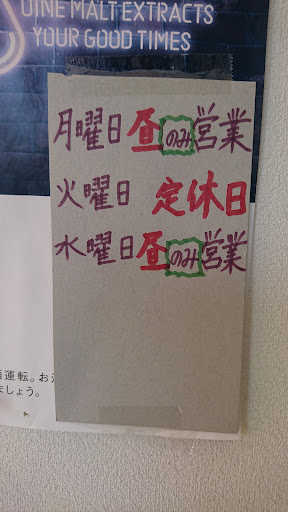 UINE MALT EXTRACTS
YOUR GOOD TIMES
月曜日昼のみ営業
火曜日 定休日
水曜日昼のみ営業
運転。お
ましょう。